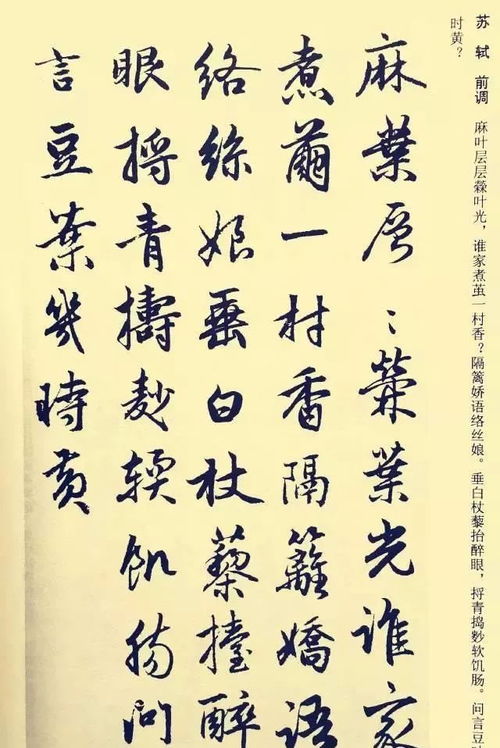 苏轼 前调 麻叶层层檾叶光，谁家煮茧一村香？隔篱娇语络丝娘。垂白杖藜抬醉眼，捋青捣麨软饥肠。问言豆
时黄？
麻葉層〻檾葉光誰家
煮繭一村香隔籬嬌語
絡絲娘垂白杖藜擡醉
眼捋青擣麨輭飢腸問
言豆葉幾時黃